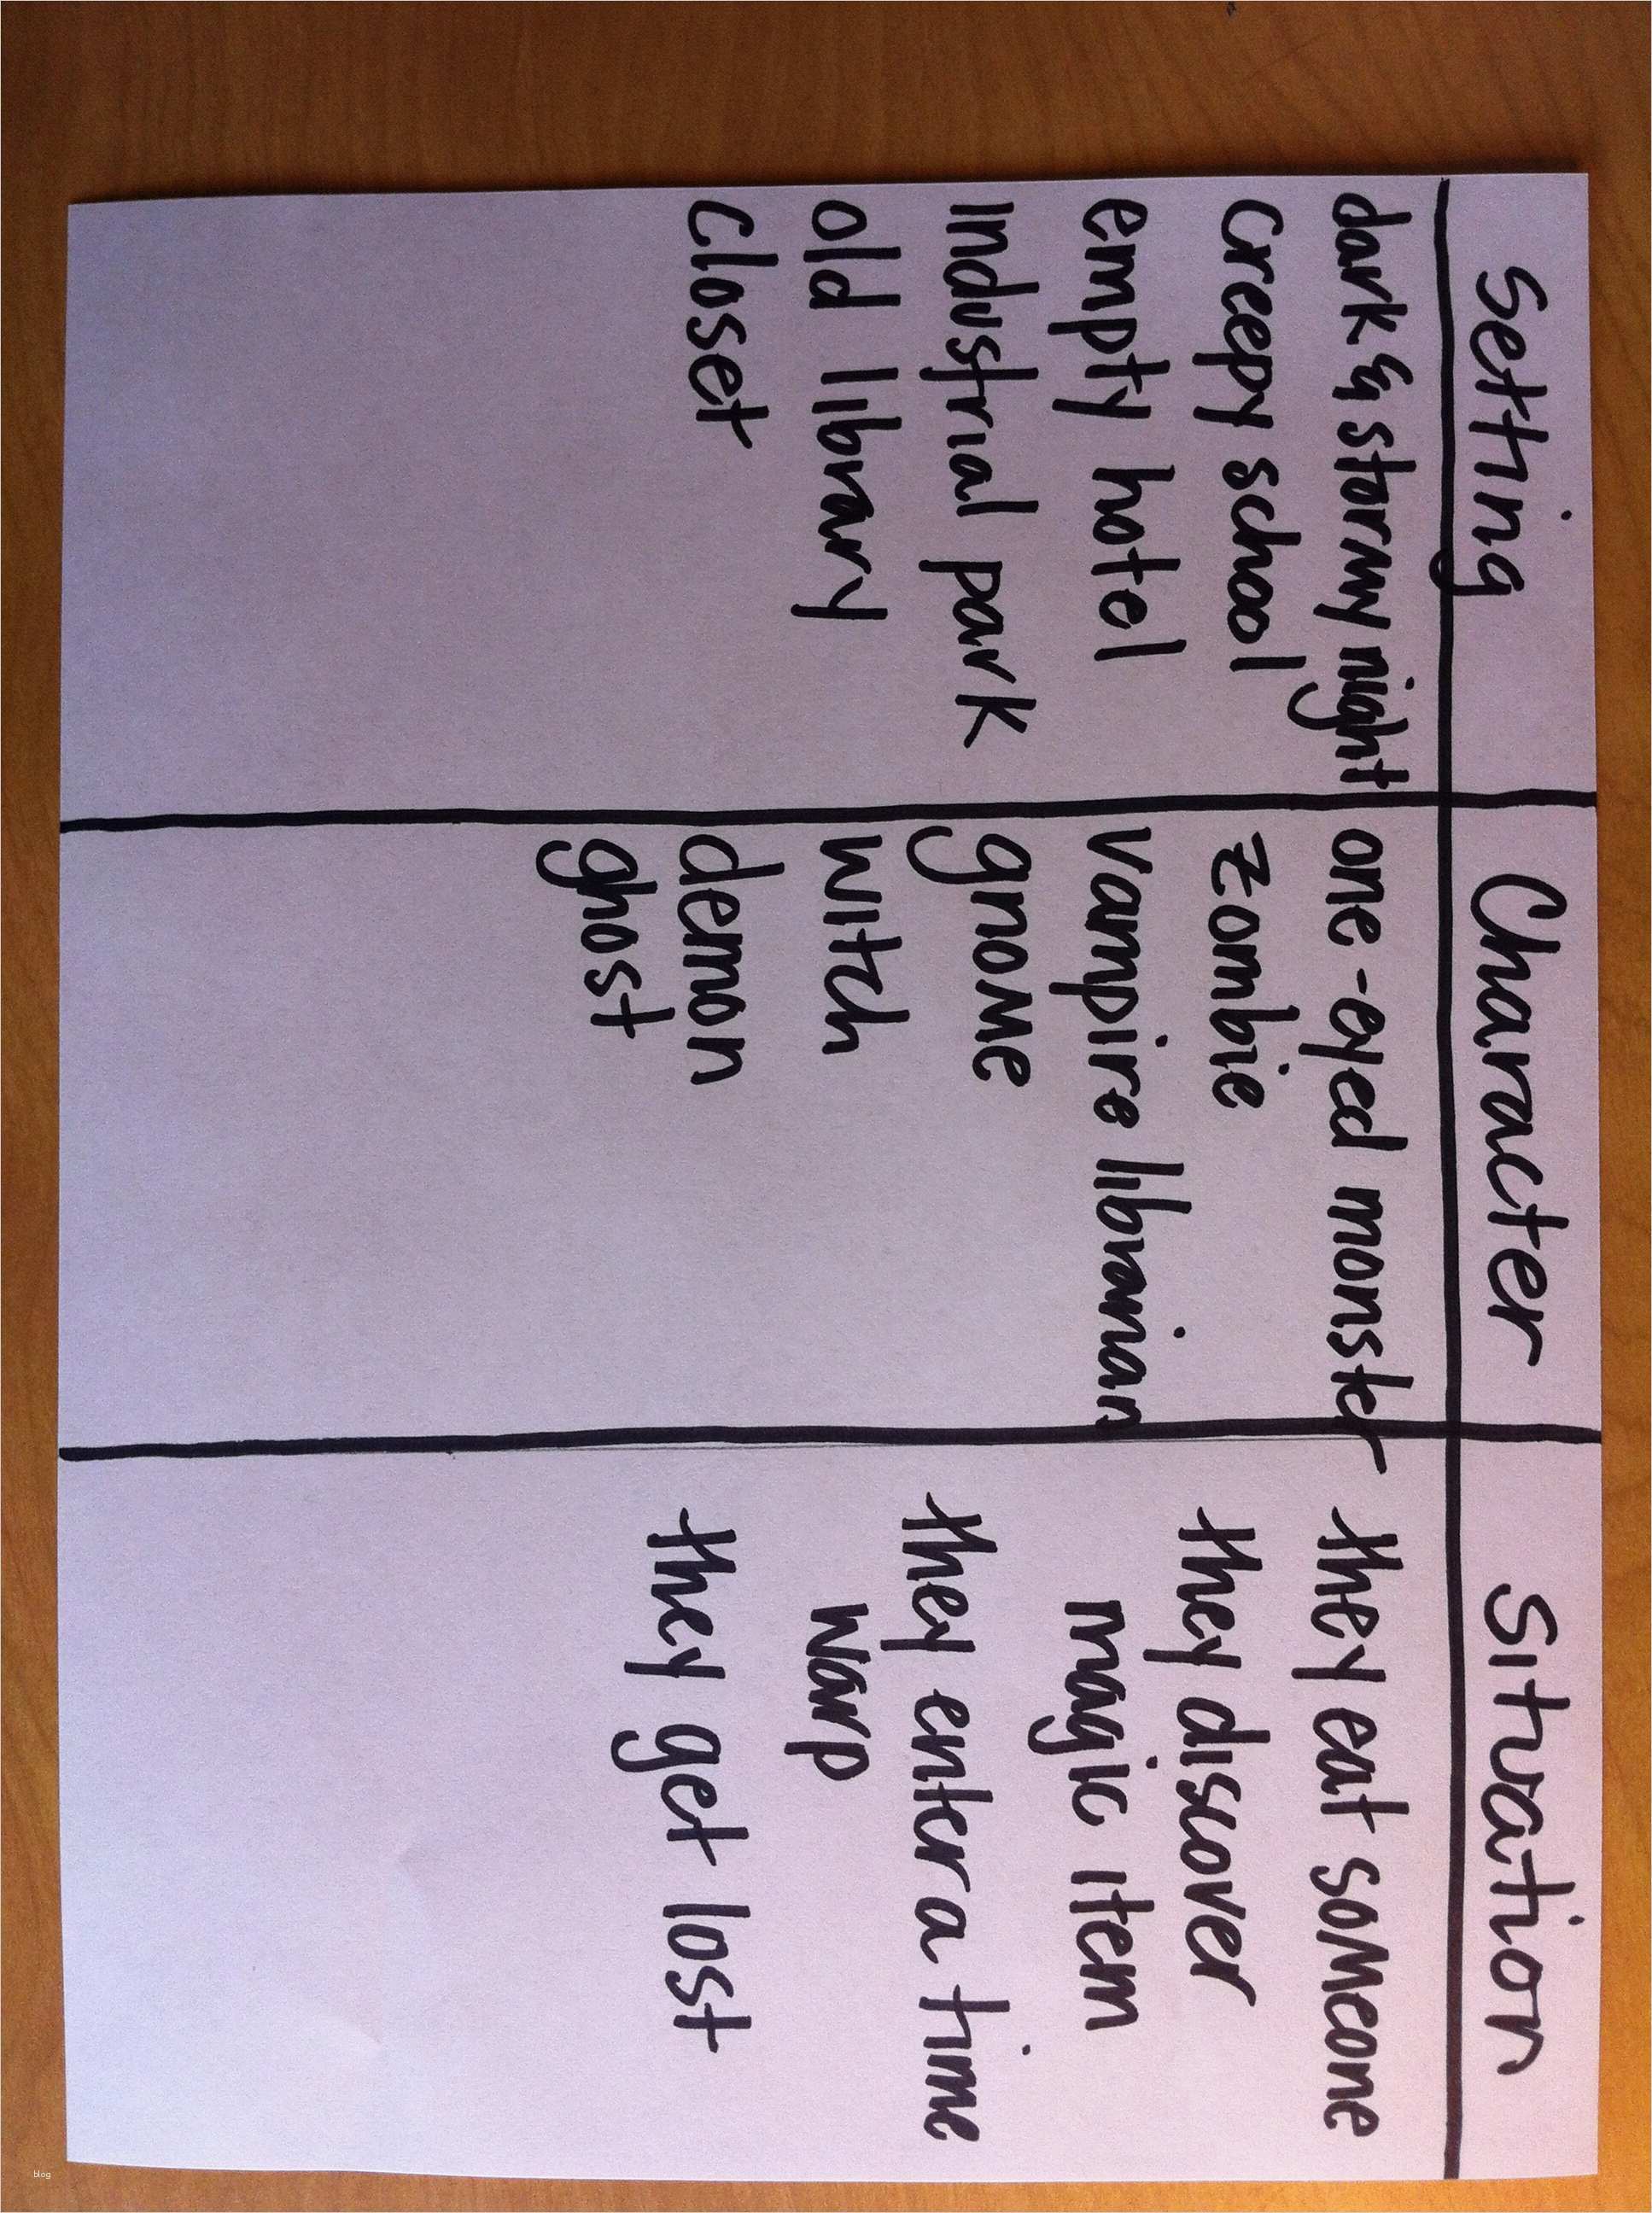 Setting
dark & stormy night
creepy school
empty hotel
Industrial park
old library
closet
Character
one-eyed monster
zombie
vampire librarian
gnome
witch
demon
ghost
Situation
they eat someone
they discover
magic item
they enter a time
warp
they get lost
blog